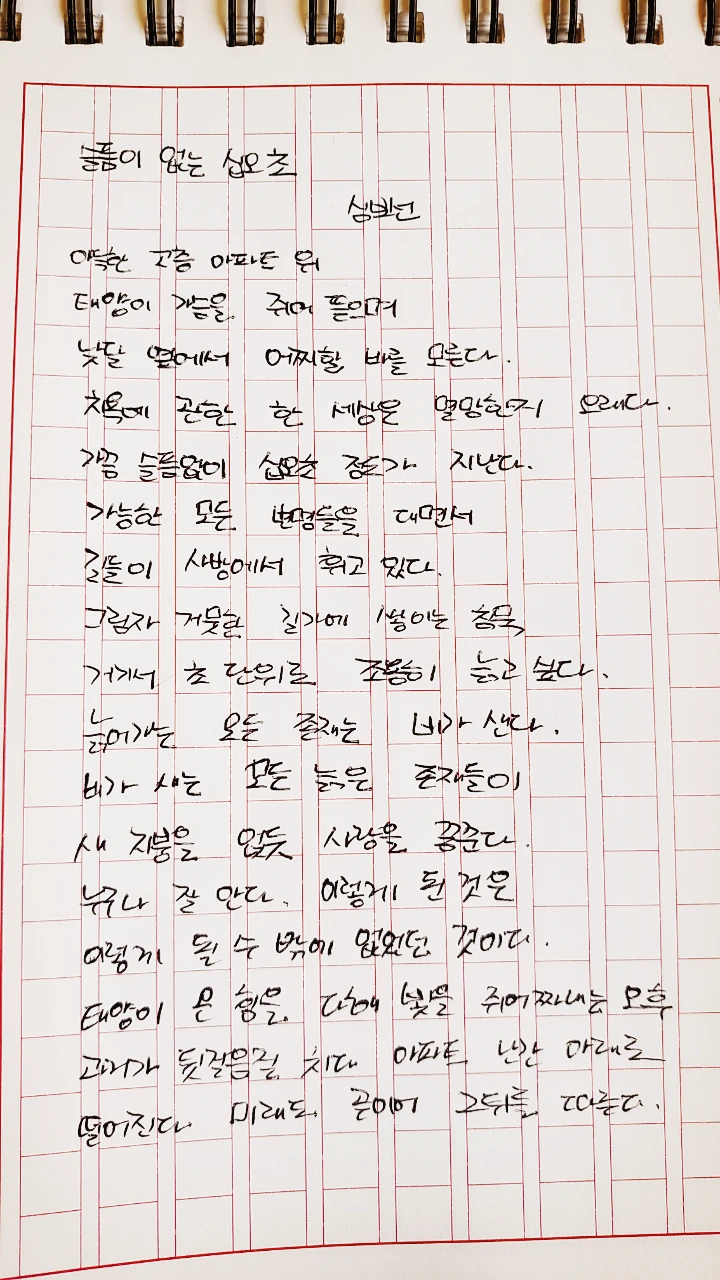 슬픔이 없는 십오 초
심보선
아득한 고층 아파트 위
태양이 가슴을 쥐어 뜯으며
낮달 옆에서 어찌할 바를 모른다.
치욕에 관한 한 세상은 멸망한지 오래다.
가끔 슬픔없이 십오초 정도가 지난다.
가능한 모든 변명들을 대면서
길들이 사방에서 휘고 있다.
그림자 거뭇한 길가에 쌓이는 침묵
거기서 초 단위로 조용히 늙고 싶다.
늙어가는 모든 존재는 비가 샌다.
비가 새는 모든 늙은 존재들이
새 지붕을 얹듯 사랑을 꿈꾼다.
누구나 잘 안다. 이렇게 된 것은
이렇게 될 수 밖에 없었던 것이다.
태양이 온 힘을 다해 빛을 쥐어짜내는 오후
과거가 뒷걸음질 치다 아파트 난간 아래로
떨어진다. 미래도 곧이어 그 뒤를 따른다.